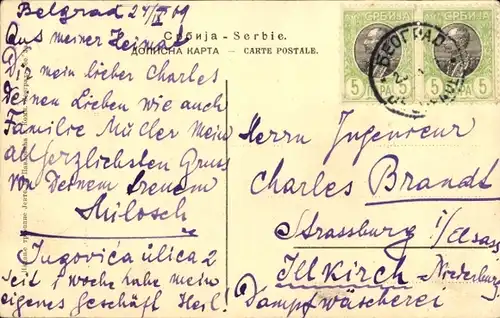 Belgrad 24/IX 09
Aus meiner Heimat
Dir mein lieber Charles
Deinen Lieben wie auch
Familie Müller mein
allerherzlichsten Gruss
von Deinem treuen
Milosch
Jugovića ulica 2
Seit 1 woche habe mein
eigenes Geschäft Heil!
Србија - Serbie.
ДОПИСНА КАРТА — CARTE POSTALE.
СРБИЈА СРБИЈА
5 ПАРА 5 5 ПАРА 5
БЕОГРАД
Herrn Jngenieur
Charles Brandt
Strassburg i/Elsass
Jllkirch - Niederburg
Dampfwäscherei